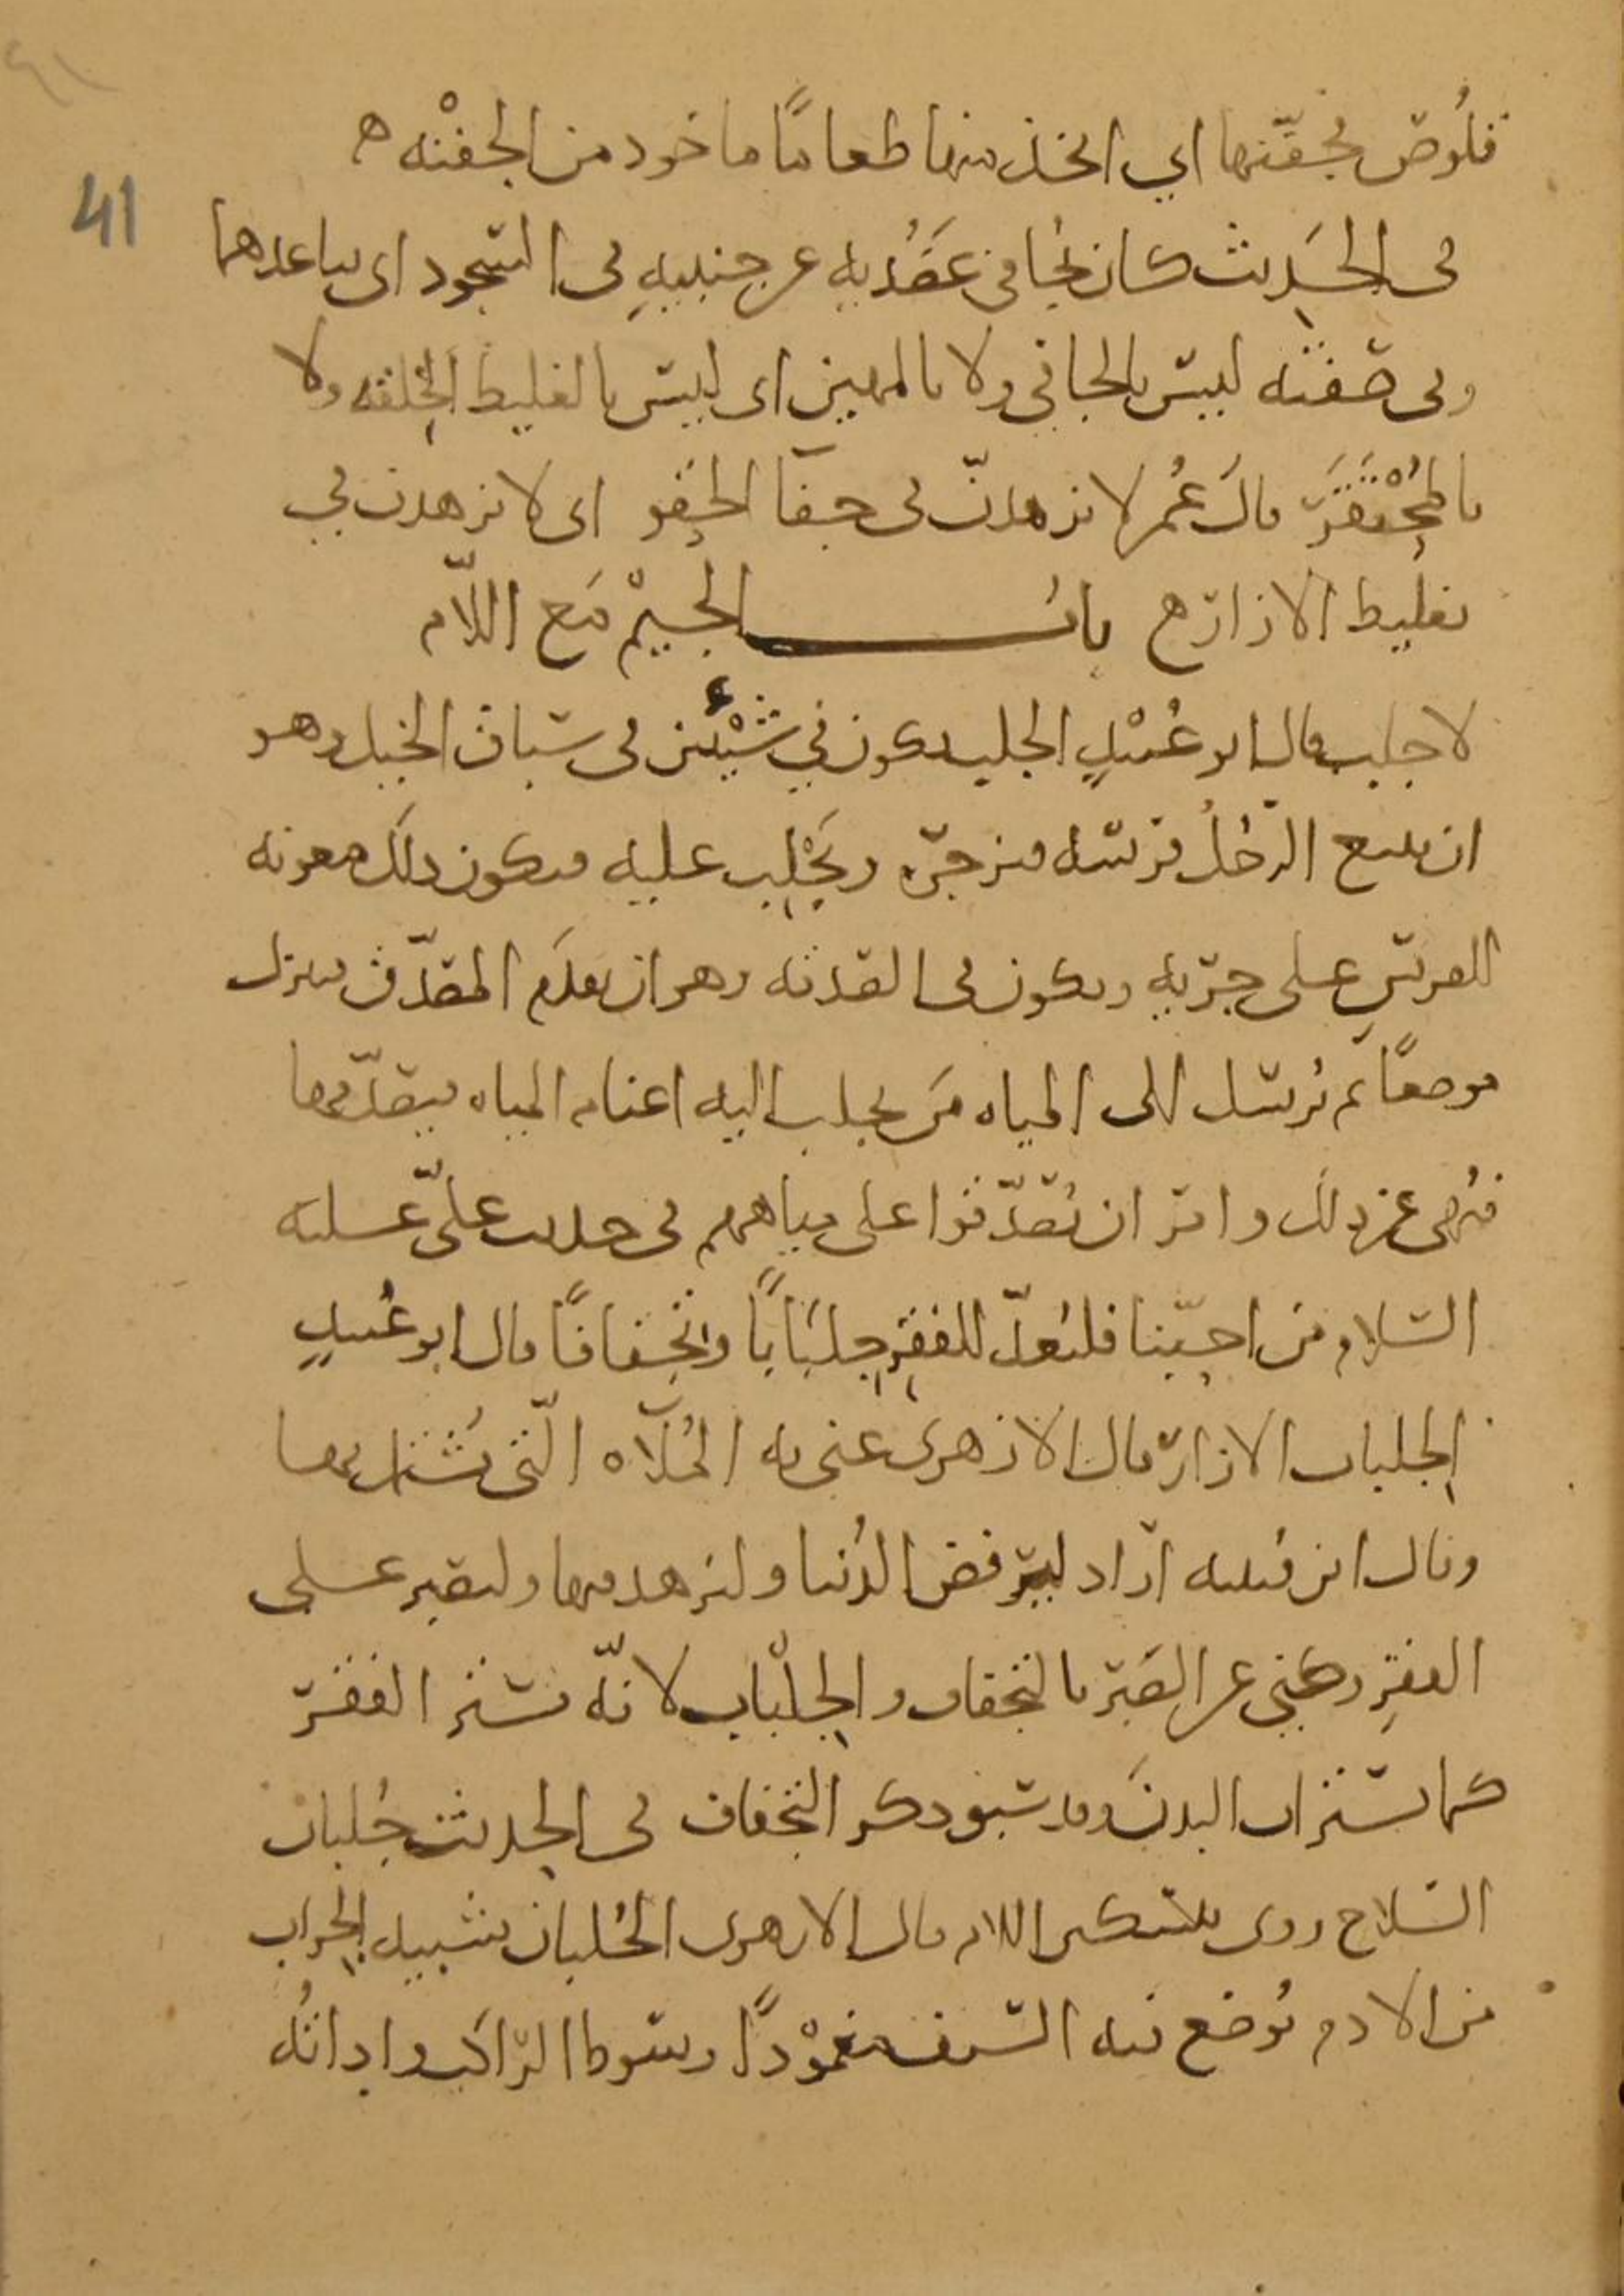 قلُوص فجفّنها اي اتخذ منها طعامًا ماخود من الجفْنه ه
41
فى الحَديث كان يُجافى عَضُديه عن جنبيهِ فى السّجود اى يباعدهما
وفى صفته ليس بالجافي ولا بالمهين اى ليس بالغليظ الخِلقه ولا
بالمُحْتَقَر قالَ عُمر لا تزهدنّ فى جفآ الحِقو اى لا تزهدن في
تغليظ الازار ه بابُ الجيمْ مَع اللاّم
لا جلب قال ابو عُبيْدٍ الجلب يكون في شَيْئين فى سباق الخيل وهو
ان يتبع الرّجُلُ فرسَه فيزجرَه ويَجْلِب عليه فيكون ذلك معونه
للفرسِ على جريهِ ويكون فى الصّدقه وهو ان يقدَم المصّدّق فينزل
موضعًا ثم يُرسل الى المياه مَن يجلب اليه اغنام المياه فيصّدّقها
فنُهى عن ذلك وامر ان يُصّدّقوا على مياههم فى حديث علىّ عليه
السّلام من احبّنا فليُعدّ للفقرِ جلبَابًا وتجفافًا قال ابو عُبيدٍ
الجلباب الازار قال الازهرى عنى به المُلآه الّتى يُشتمل بها
وقال ابن قُتيبه ارَاد ليَرفض الدُنيا وليزهد فيها وليصبر على
الفقرِ وكنى عن الصَبر بالتجفاف والجِلْباب لانّه يستر الفقرَ
كما يستران البدنَ وقد سبق ذكر التجفاف فى الحديث جُلبان
السّلاح روى بتسكين اللام قال الازهرى الجُلبان يشبه الجراب
من الادم يُوضع فيه السّيف مغموْدًا وسَوط الرّاكب واداتُه